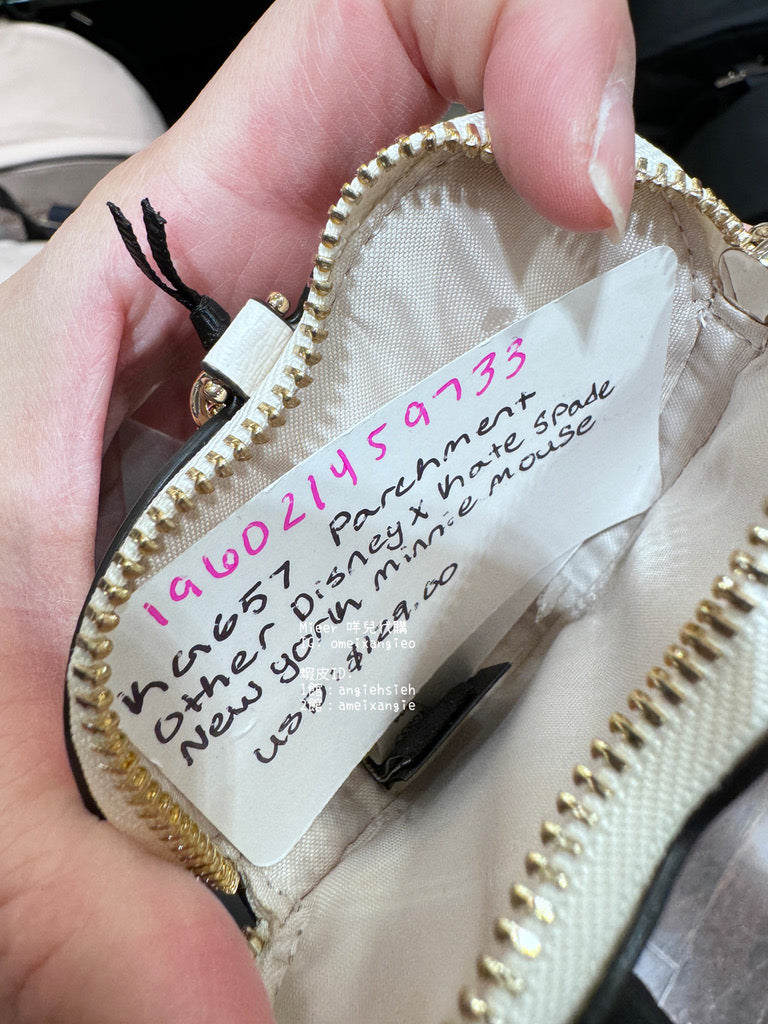 196021459733
KG657 Parchment
Other Disney x Kate Spade
New York Minnie Mouse
Mieer 咩兒代購
IG: omeixangieo
蝦皮ID:
1館：angiehsieh
2館：ameixangie